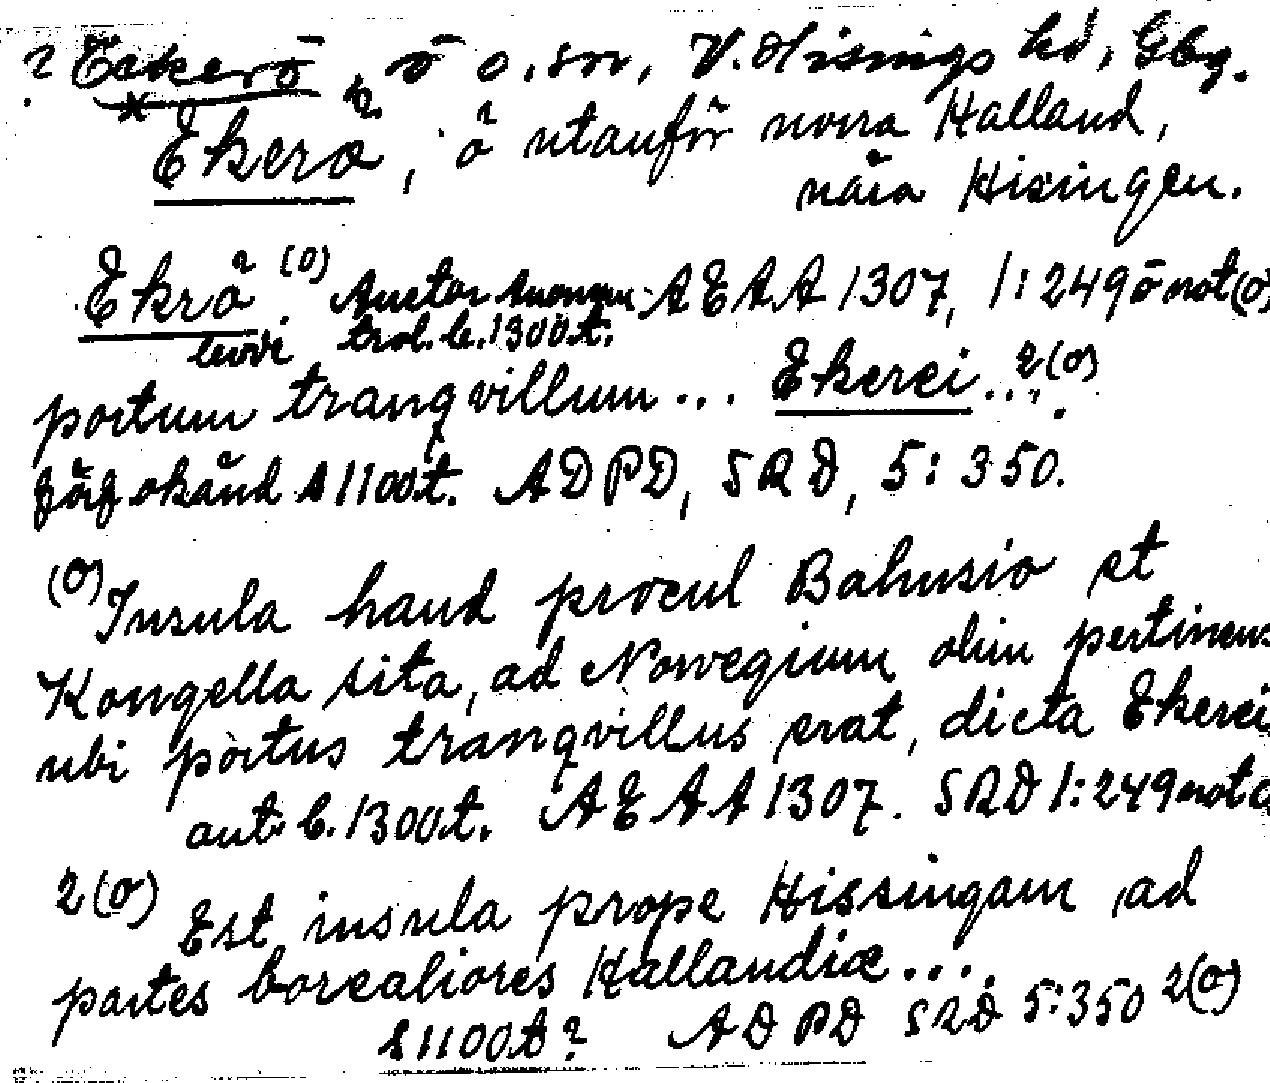 ? Eckerö, ö o. sn, V. Hisings hd, Gbg.
* Ekerö, ö utanför norra Halland,
nära Hisingen.
Ekrö (o). Auctor Anonym. AEAA 1307, 1:249 ö not (o)
trol. b. 1300t.
portum tranqvillum... Ekerei... 2(o)
förf okänd s 1100t. ADPD, SRD, 5:350.
(o) Insula haud procul Bahusio et
Kongella sita, ad Norvegium olim pertinens
ubi portus tranqvillus erat, dicta Ekerei
aut. b. 1300t. AEAA 1307. SRD 1:249 not o
2(o) Est insula prope Hissingam ad
partes borealiores Hallandiæ....
s 1100t? ADPD SRD 5:350 2(o)